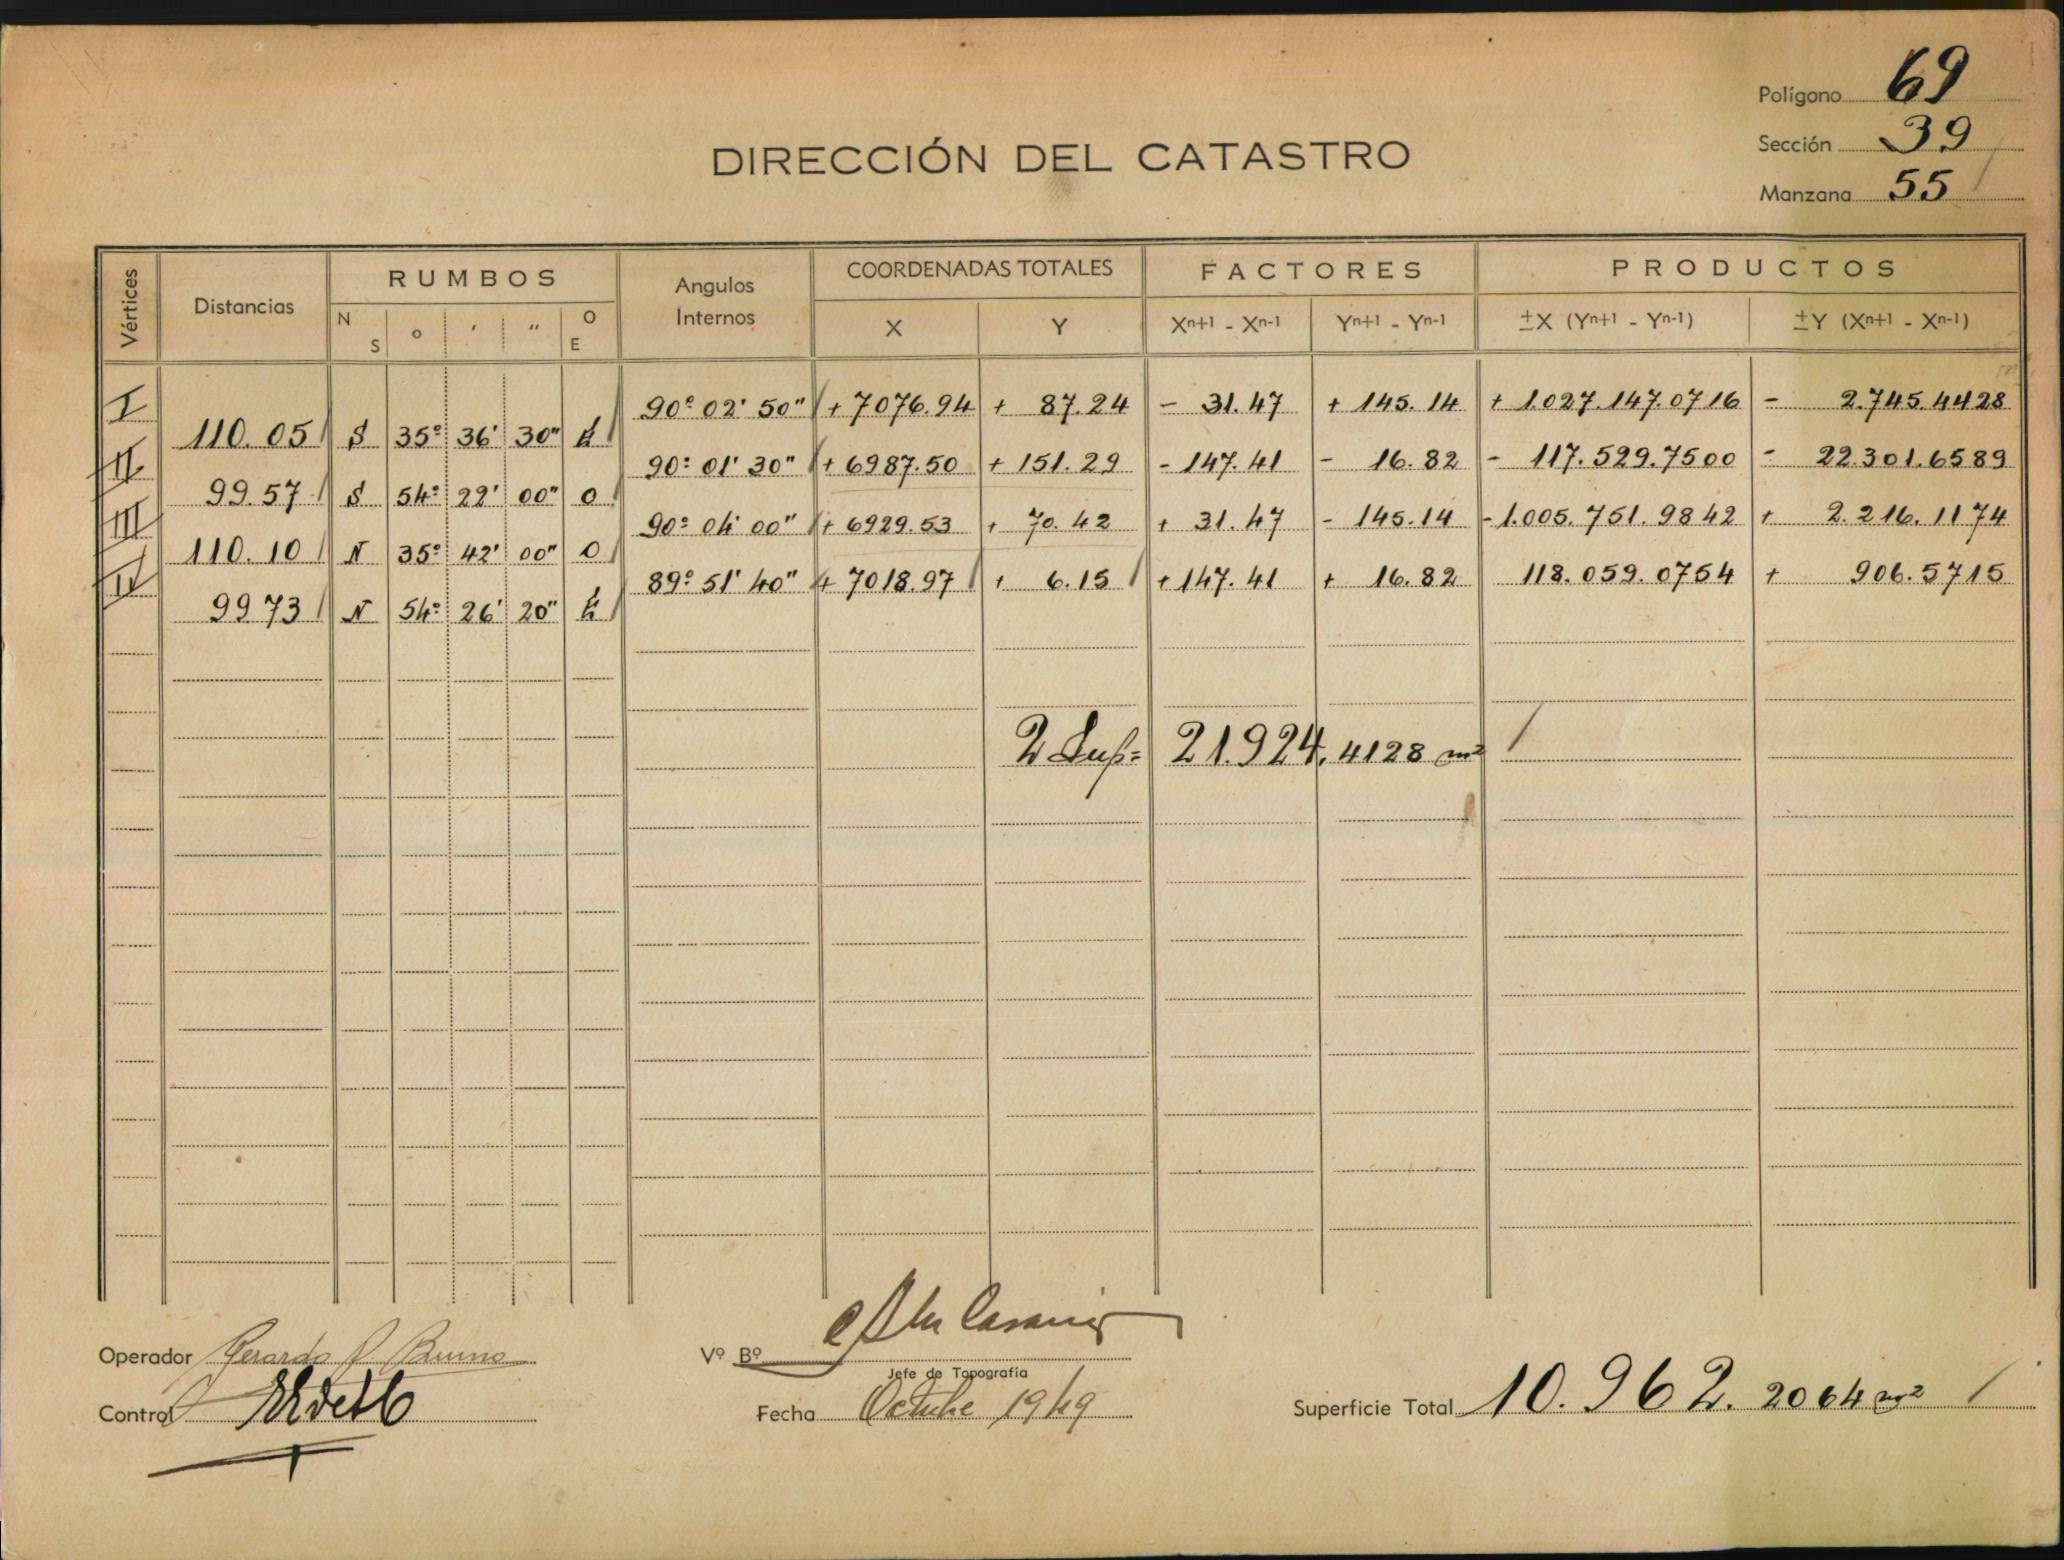 Polígono 69
Sección 39
DIRECCIÓN DEL CATASTRO
Manzana 55
Vértices Distancias RUMBOS N S ° ' " O E Angulos Internos COORDENADAS TOTALES X Y FACTORES Xn+1 - Xn-1 Yn+1 - Yn-1 PRODUCTOS ±X (Yn+1 - Yn-1) ±Y (Xn+1 - Xn-1)
I 90° 02' 50" + 7076.94 + 87.24 - 31.47 + 145.14 + 1.027.147.0716 - 2.745.4428
110.05 S 35° 36' 30" E
II 90° 01' 30" + 6987.50 + 151.29 - 147.41 - 16.82 - 117.529.7500 - 22.301.6589
99.57 S 54° 22' 00" O
III 90° 04' 00" + 6929.53 + 70.42 + 31.47 - 145.14 - 1.005.751.9842 + 2.216.1174
110.10 N 35° 42' 00" O
IV 89° 51' 40" + 7018.97 + 6.15 + 147.41 + 16.82 118.059.0754 + 906.5715
99 73 N 54° 26' 20" E
2 Sup= 21.924.4128 m²
Operador Gerardo Bruno
Vº Bº
Jefe de Topografía
Control
Fecha Octubre 1949
Superficie Total 10.962.2064 m²